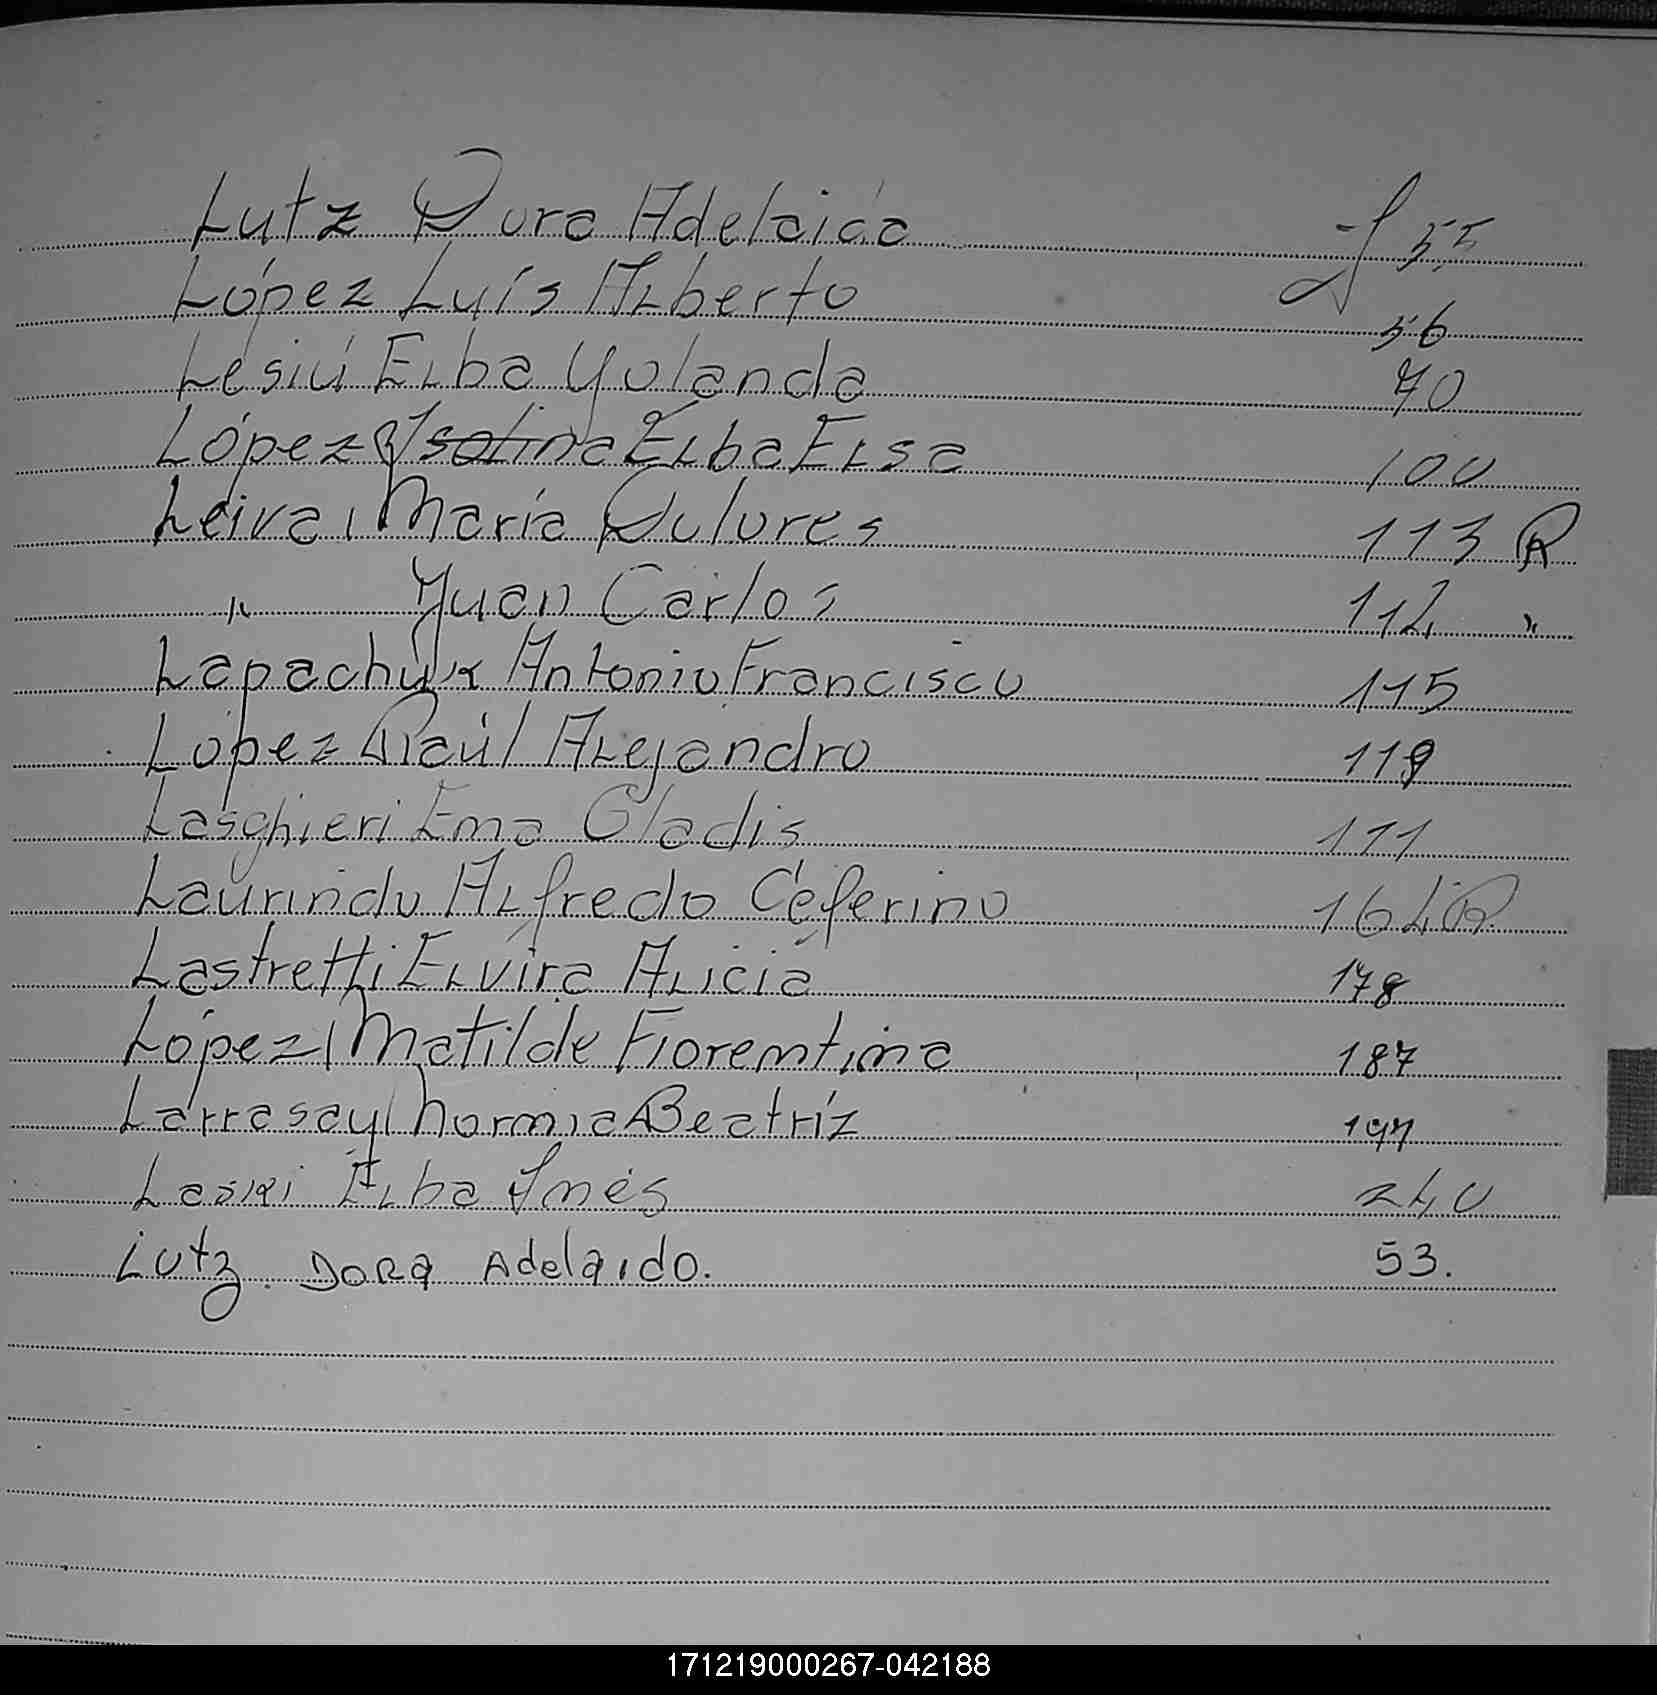 Lutz Dora Adelaida f 55
López Luís Alberto 56
Lesiú Elba Yolanda 70
López Ysolina Elba Elsa 100
Leiva, María Dolores 113 R
" Juan Carlos 112 "
Lapachuk Antonio Francisco 115
López Raúl Alejandro 119
Lasghieri Ema Gladis 171
Laurindo Alfredo Ceferino 164 R
Lastretti Elvira Alicia 178
López Matilde Fiorentina 187
Larrasay Norma Beatríz
Elba Ynés 240
Lutz. Dora Adelaido. 53.
171219000267-042188